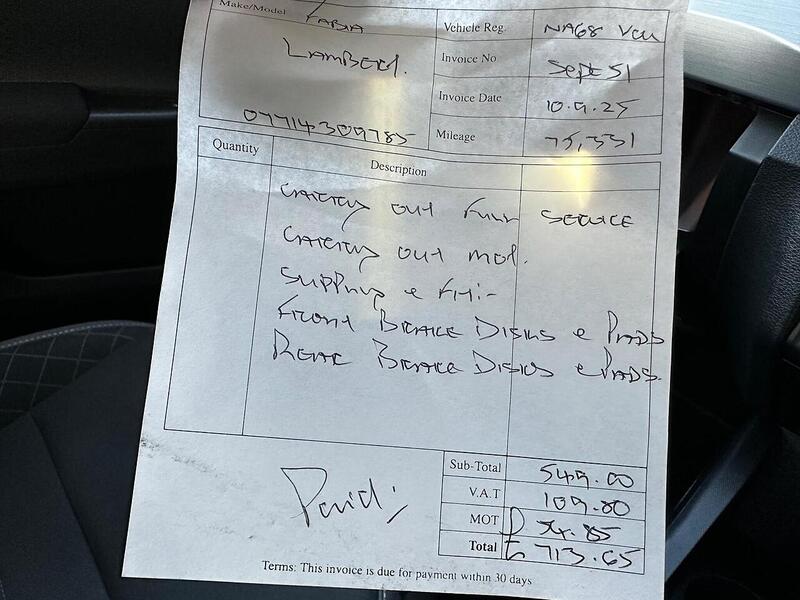 Make/Model FABIA
Vehicle Reg. NA68 VCU
LAMBERT.
Invoice No Sept 51
Invoice Date 10.9.25
07714309785
Mileage 75,331
Quantity Description
CARRY OUT FULL SERVICE
CARRY OUT MOT.
SUPPLY & FIT:-
FRONT BRAKE DISKS & PADS
REAR BRAKE DISKS & PADS.
Sub-Total 549.00
V.A.T 109.80
Paid
MOT 54.85
Total £ 713.65
Terms: This invoice is due for payment within 30 days